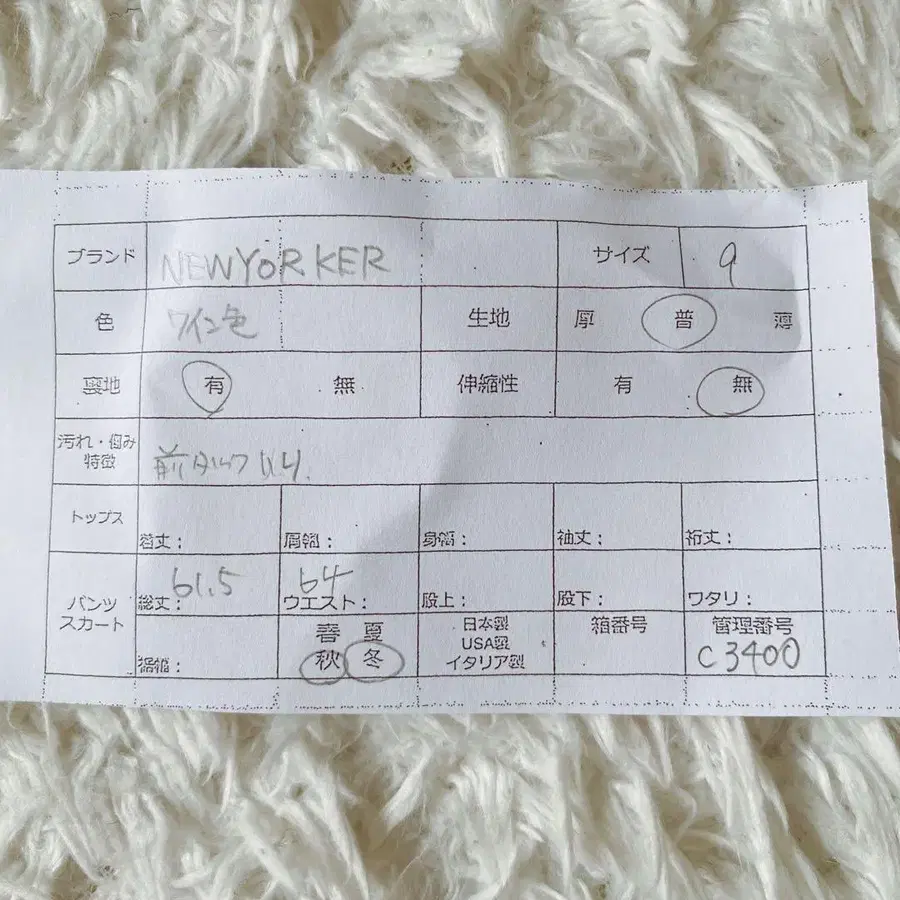 ブランド NEWYORKER サイズ 9
色 ワイン色 生地 厚 普 薄
裏地 有 無 伸縮性 有 無
汚れ・傷み
特徴 前タック入り.
トップス 着丈： 肩幅： 身幅： 袖丈： 裄丈：
パンツ
スカート 総丈： 61.5 ウエスト： 64 股上： 股下： ワタリ：
裾幅： 春 夏
秋 冬
日本製
USA製
イタリア製
箱番号
管理番号
C3400